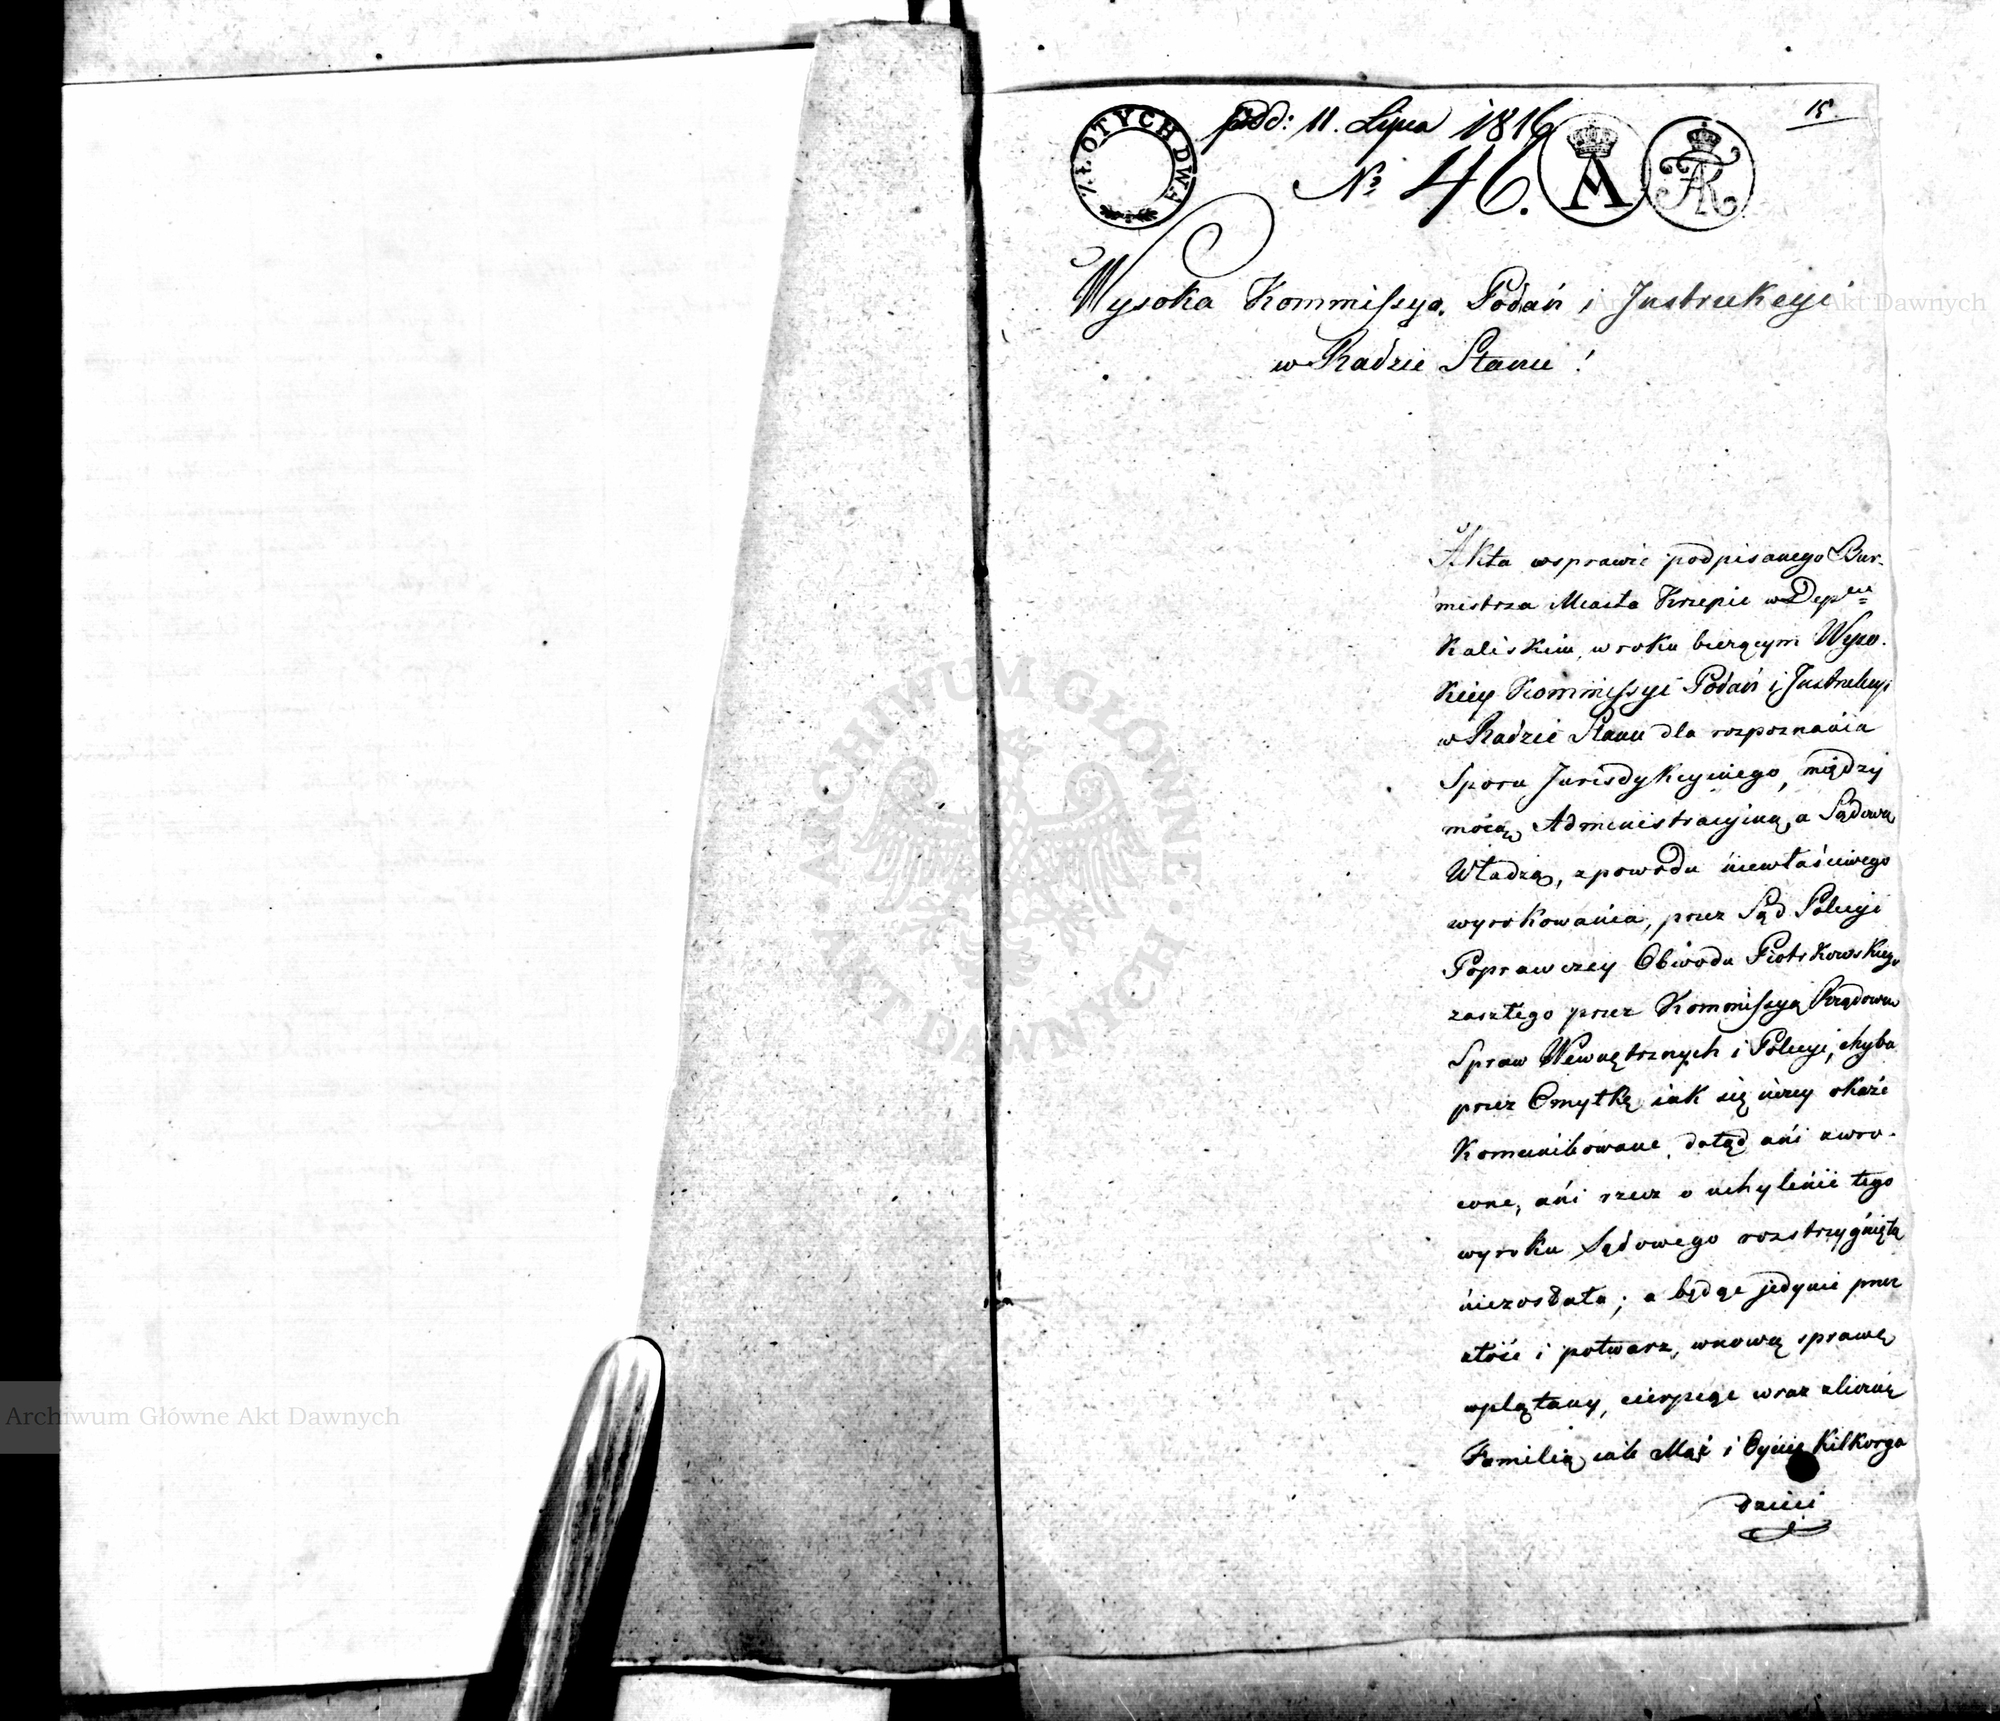 15.
ZŁOTYCH DWA
pdd: 11. Lipca 1816
№ 46.
Wysoka Kommissya Podań i Instrukcyi
w Radzie Stanu!
Akta wsprawie podpisanego Bur-
mistrza Miasta Krzepic w Dep
Kaliskim, w roku bieżącym Wyso-
kiey Kommissyi Podań i Instrukcyi
w Radzie Stanu dla rozpoznania
Sporu Jurisdykcyinego, między
mócą Administracyiną, a Sądową
Władzą, zpowodu niewłaściwego
wyrokowania, przez Sąd Policyi
Poprawczey Obwodu Piotrkowskiego
zaszłego przez Kommissyą Rządową
Spraw Wewnętrznych i Policyi, chyba
przez Omyłkę iak się niżey okaże
Komunikowane, dotąd ani zwro-
cone, ani rzecz o uchylenie tego
wyroku Sądowego rozstrzygniętą
niezostała; a będąc jedynie przez
złość i potwarz, wnową sprawę
wplątany, cierpiąc wraz zliczną
Familią iak Mąż i Oyciec kilkorga
dzieci
Archiwum Główne Akt Dawnych
ARCHIWUM GŁÓWNE AKT DAWNYCH
Archiwum Główne Akt Dawnych